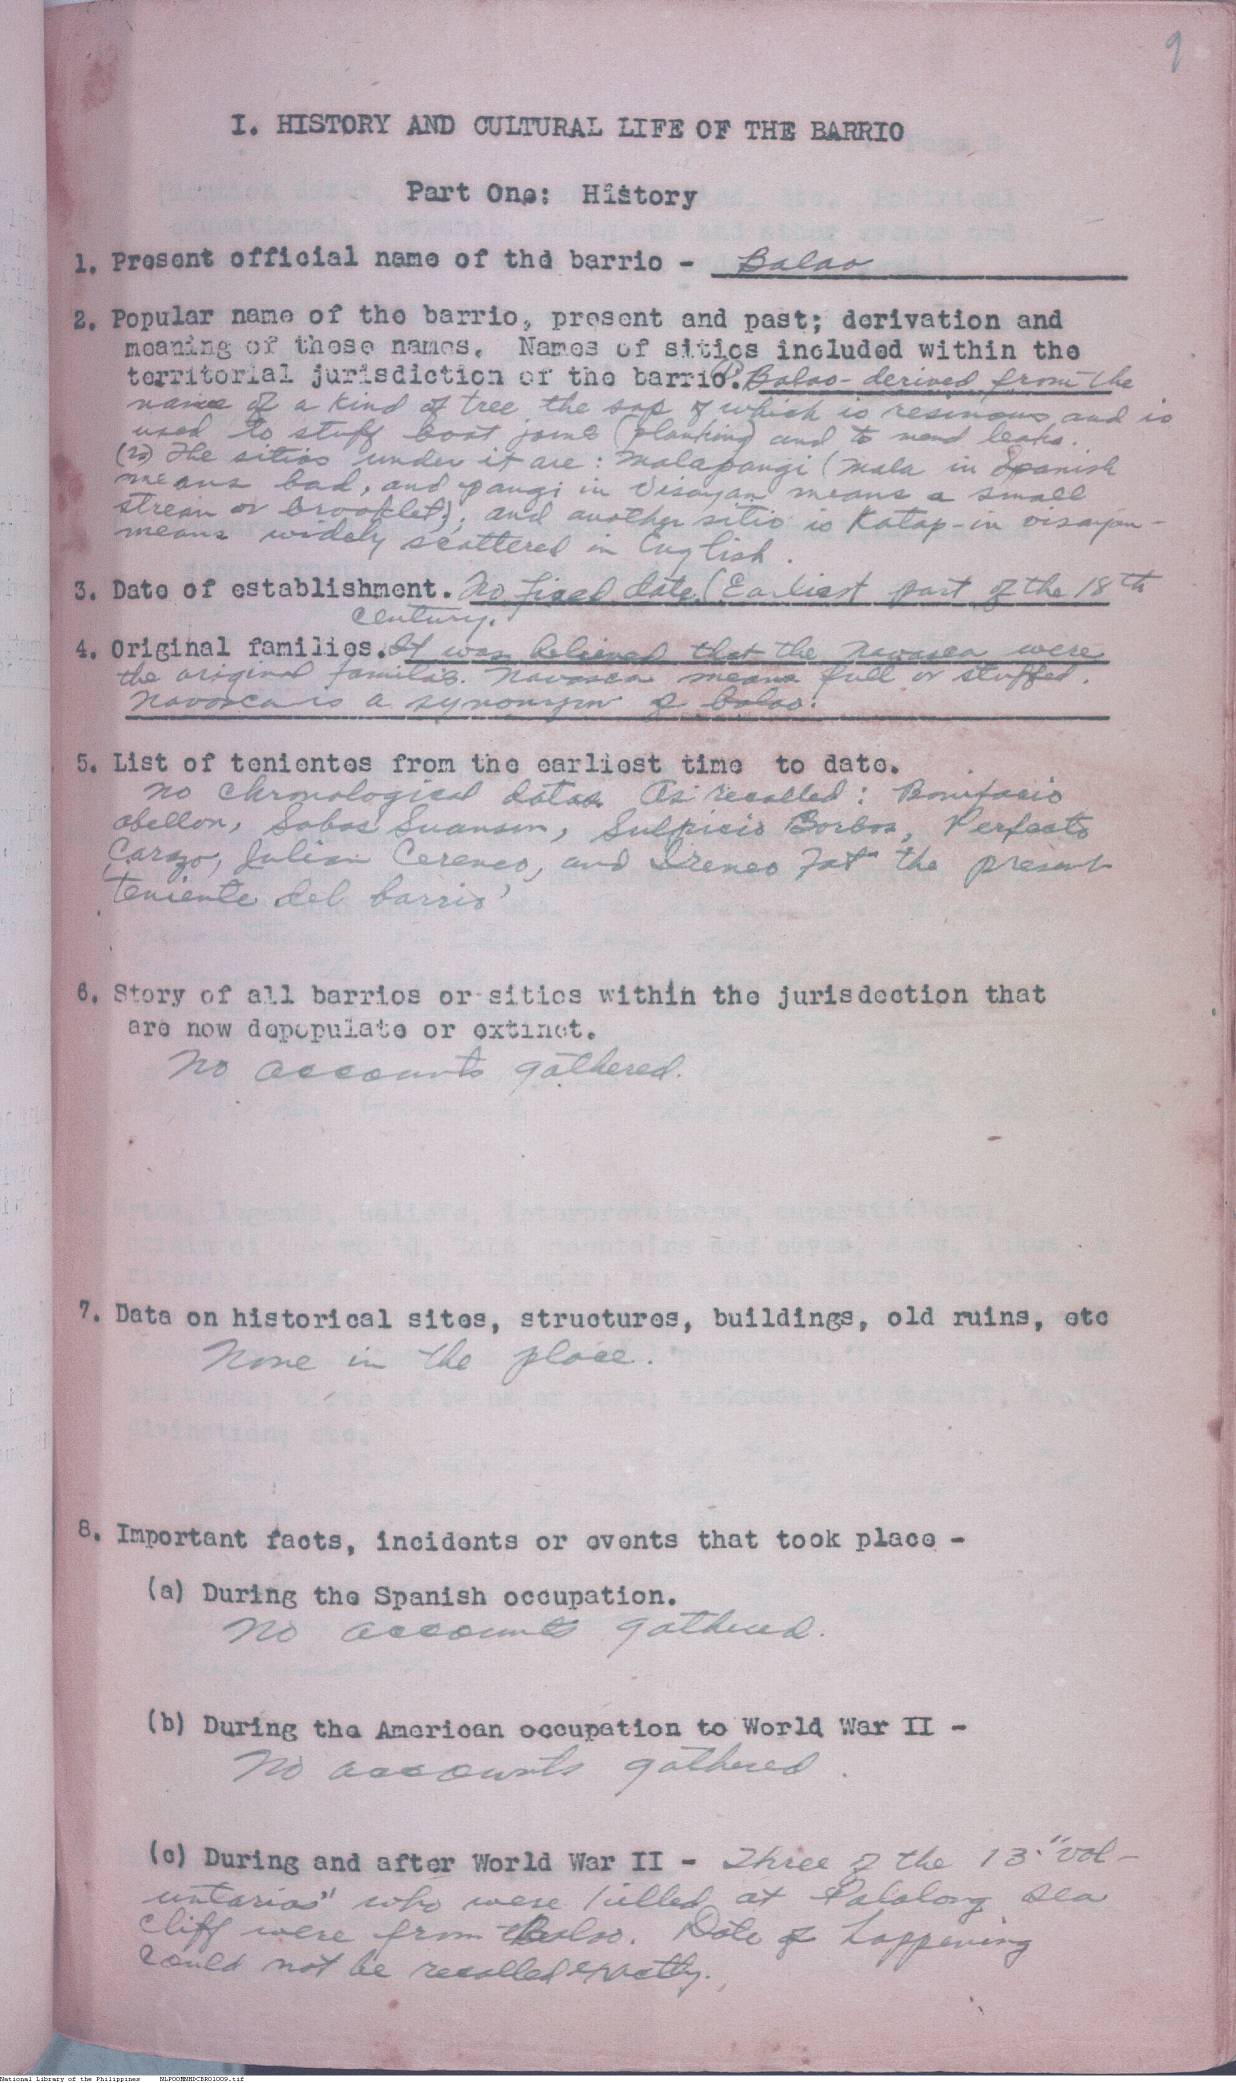 9
I. HISTORY AND CULTURAL LIFE OF THE BARRIO
Part One: History
1. Present official name of the barrio - Balao
2. Popular name of the barrio, present and past; derivation and
meaning of these names. Names of sitios included within the
territorial jurisdiction of the barrio. Balao- derived from the
name of a kind of tree the sap of which is resinous and is
used to stuff boat joint (planking) and to mend leaks.
The sitios under it are: Malapangi (mala in Spanish
means bad, and pangi in Visayan means a small
stream or brooklet); and another sitio is Katap-in visayan-
means widely scattered in English.
3. Date of establishment. No fixed date (Earliest part of the 18th
century.
4. Original families. It was believed that the Navasca were
the original families. Navasca means full or stuffed.
Navasca is a synonym of balao.
5. List of tenientes from the earliest time to date.
No chronological data. As recalled: Bonifacio
Abellon, Sabas Suanson, Sulpicio Borbos, Perfecto
Carazo, Julian Cereneo, and Ireneo Fat the present
'teniente del barrio'
6. Story of all barrios or sitios within the jurisdection that
are now depopulate or extinct.
No accounts gathered.
7. Data on historical sites, structures, buildings, old ruins, etc
None in the place.
8. Important facts, incidents or events that took place -
(a) During the Spanish occupation.
No accounts gathered.
(b) During the American occupation to World War II -
No accounts gathered.
(c) During and after World War II - Three of the 13 "vol-
untarios" who were killed at Palalong sea
cliff were from Balao. Date of happening
could not be recalled exactly.
National Library of the Philippines NLPOOMNHDCBRO1009.tif